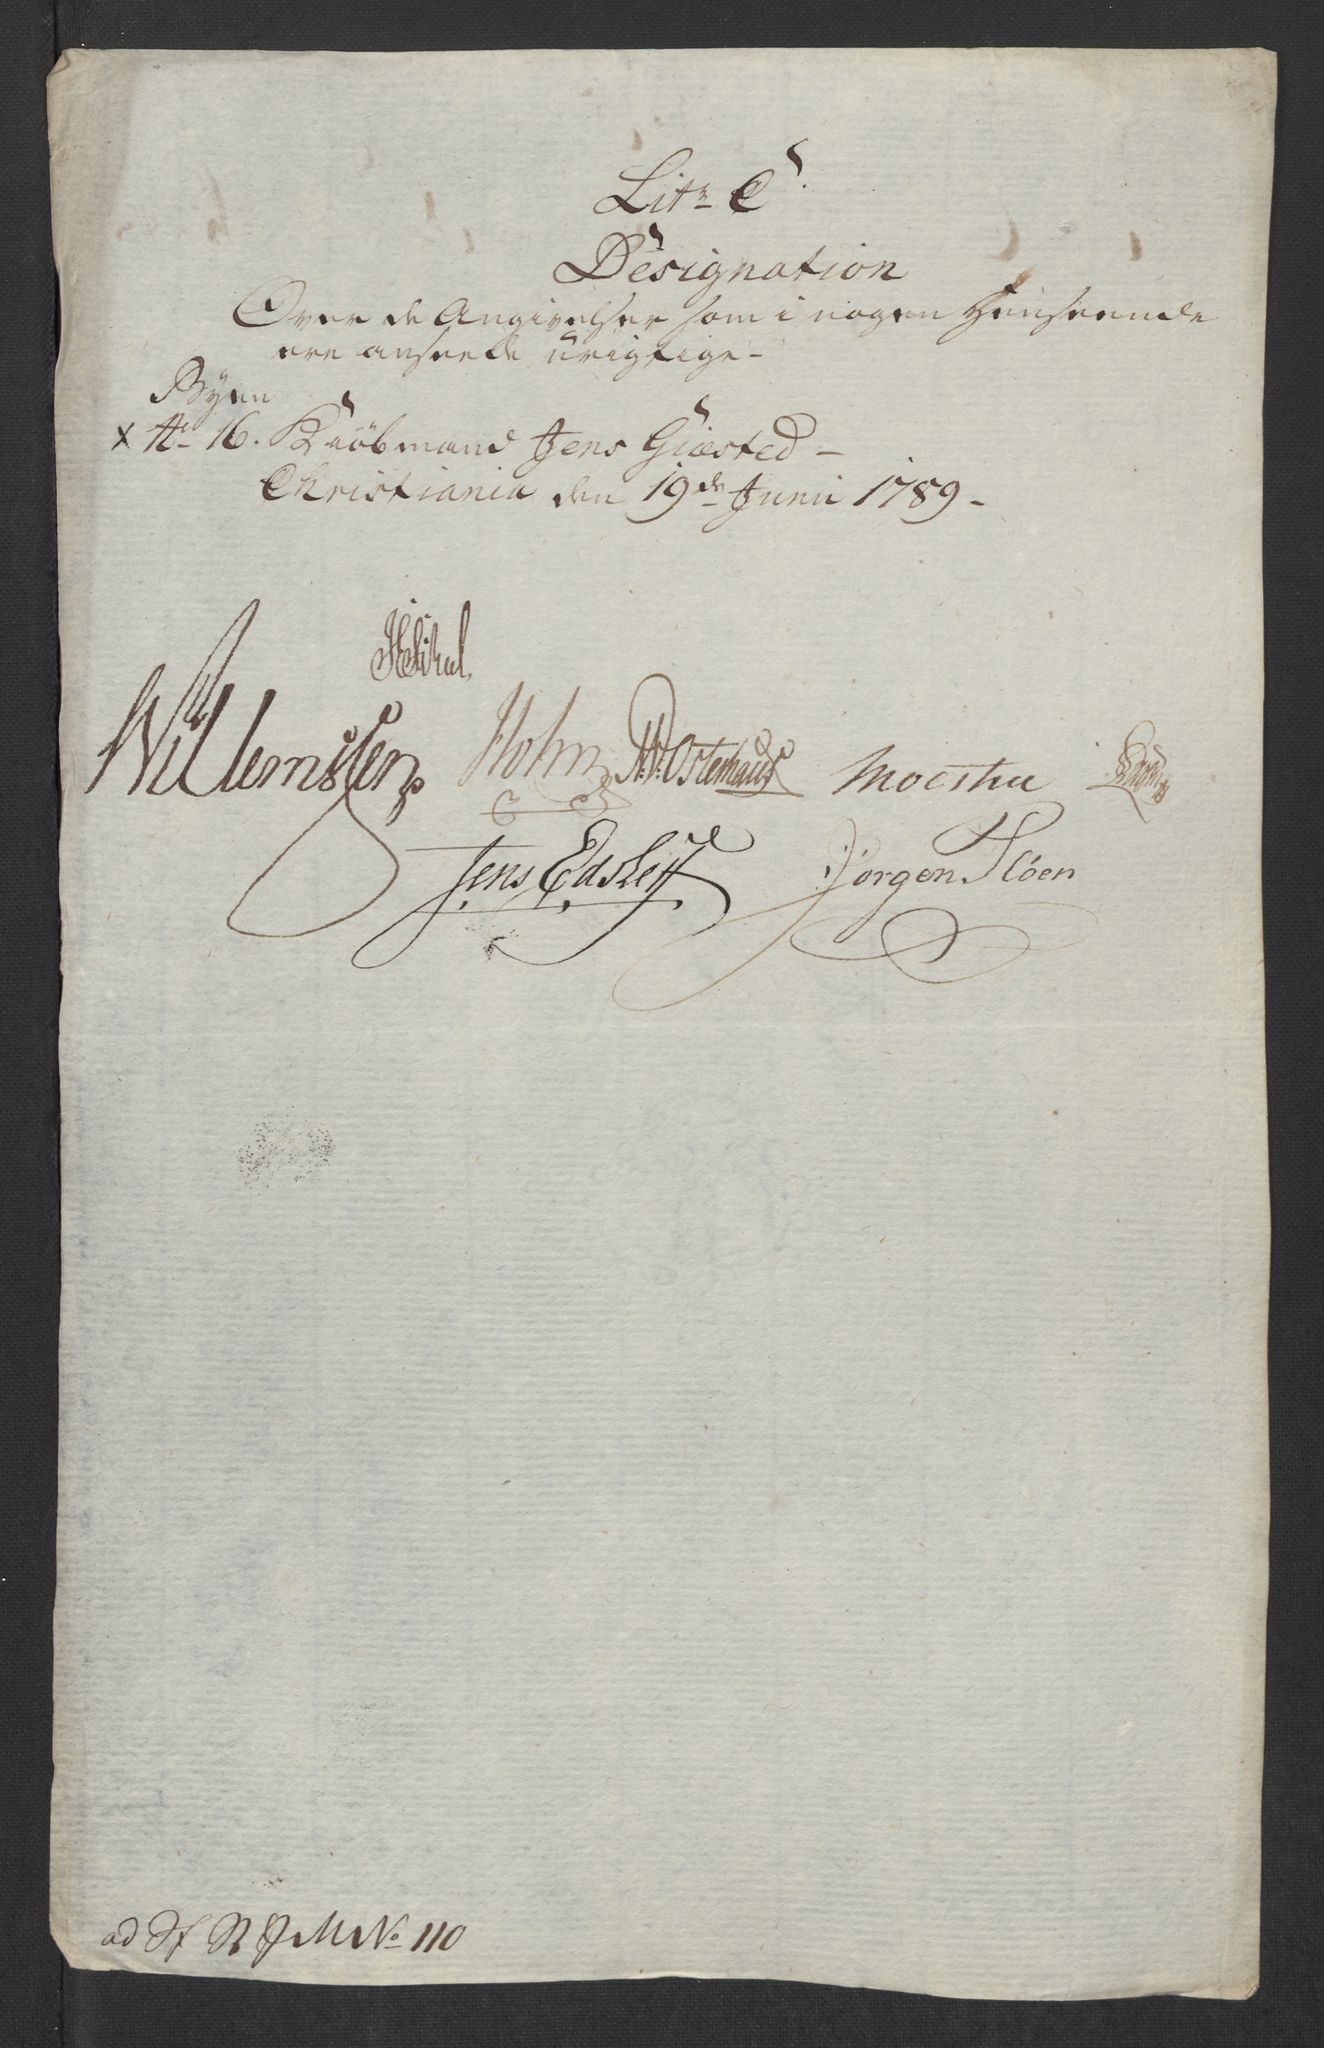 Litr C.
Designation
Over de Angivelser som i nogen Henseende
ere anseede urigtige -
Byen
x No 16. Kiöbmand Jens Giæsted -
Christiania den 19de Junii 1789 -
Willemssen Holm N. P. Osterhaus Moestue
Jens Edsleff Jörgen Flöen
ad St R J M No 110